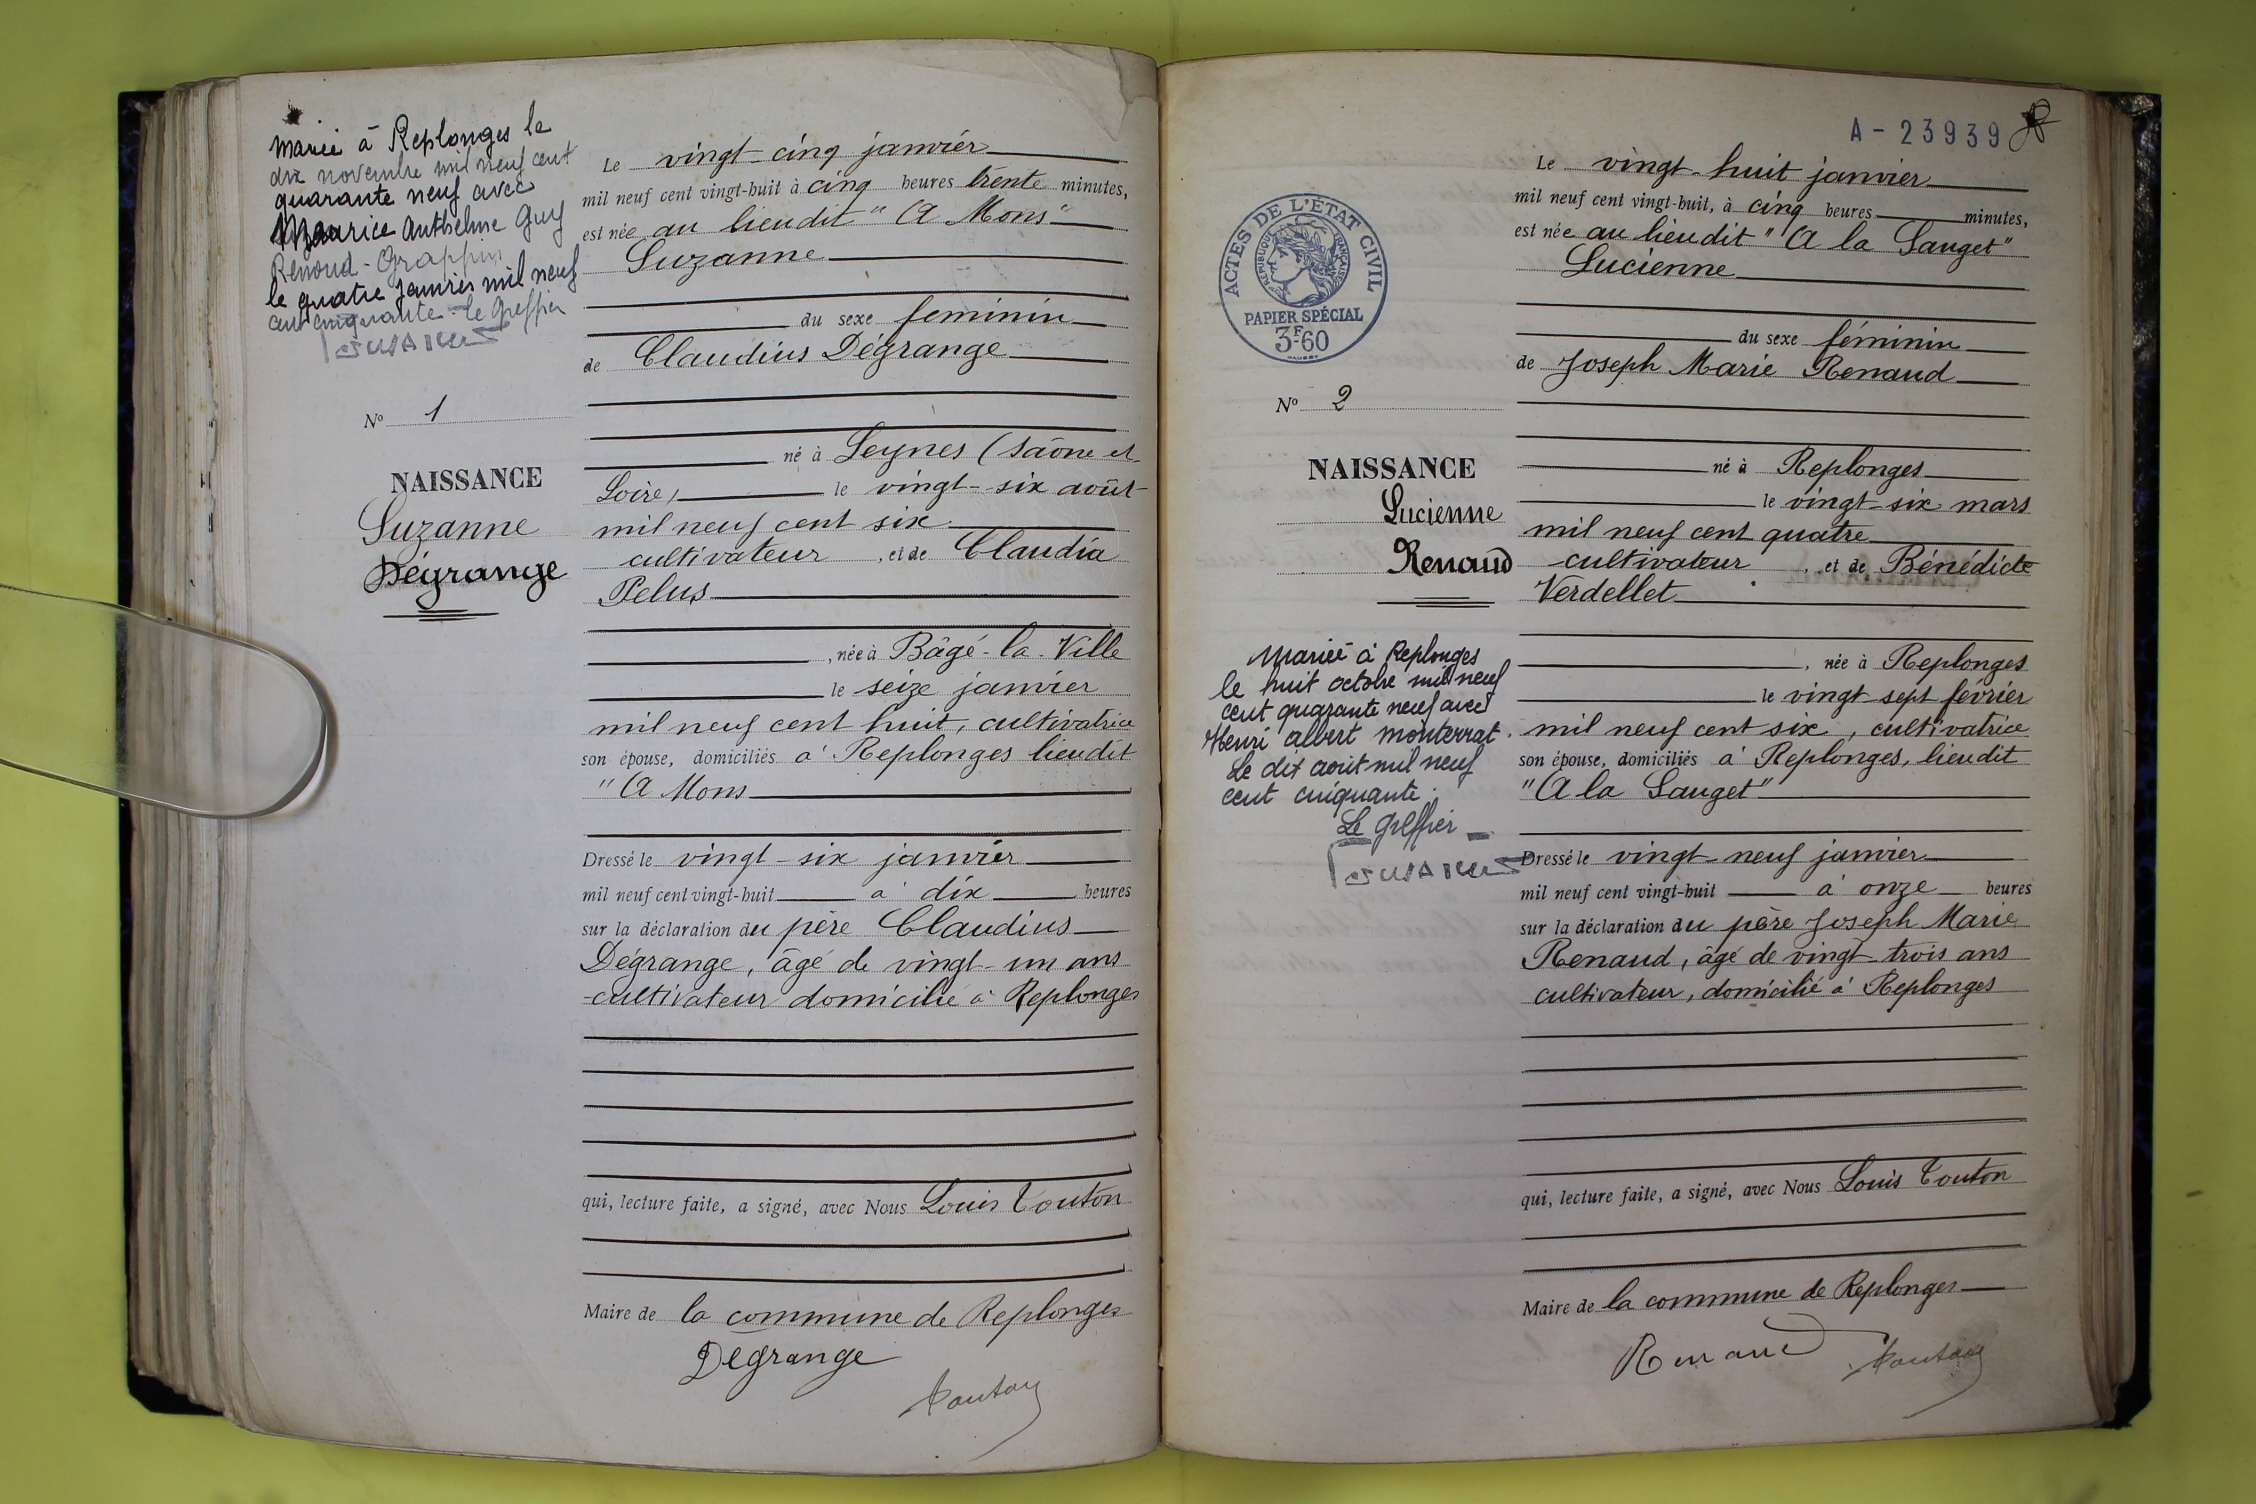 Mariée à Replonges le
dix novembre mil neuf cent
quarante neuf avec
Maurice Anthelme Guy
Renoud-Grappin
le quatre janvier mil neuf
cent cinquante - le Greffier
N° 1
NAISSANCE
Suzanne
Dégrange
Le vingt-cinq janvier
mil neuf cent vingt-huit à cinq heures trente minutes,
est née au lieudit "A Mons"
Suzanne
du sexe féminin
de Claudius Dégrange
né à Leynes (Saône et
Loire) le vingt-six août
mil neuf cent six
cultivateur, et de Claudia
Pelus
, née à Bâgé-la-Ville
le seize janvier
mil neuf cent huit, cultivatrice
son épouse, domiciliés à Replonges lieudit
"A Mons
Dressé le vingt-six janvier
mil neuf cent vingt-huit à dix heures
sur la déclaration du père Claudius
Dégrange, âgé de vingt-un ans
cultivateur domicilié à Replonges
qui, lecture faite, a signé, avec Nous Louis Touton
Maire de la commune de Replonges
Degrange
Touton
A-23939
ACTES DE L'ÉTAT CIVIL
RÉPUBLIQUE FRANÇAISE
PAPIER SPÉCIAL
3F60
N° 2
NAISSANCE
Lucienne
Renaud
Mariée à Replonges
le huit octobre mil neuf
cent quarante neuf avec
Henri Albert Monterrat.
Le dix août mil neuf
cent cinquante.
Le Greffier
Le vingt-huit janvier
mil neuf cent vingt-huit, à cinq heures minutes,
est née au lieudit "A la Sauget"
Lucienne
du sexe féminin
de Joseph Marie Renaud
né à Replonges
le vingt-six mars
mil neuf cent quatre
cultivateur, et de Bénédicte
Verdellet
, née à Replonges
le vingt-sept février
mil neuf cent six, cultivatrice
son épouse, domiciliés à Replonges, lieudit
"A la Sauget"
Dressé le vingt-neuf janvier
mil neuf cent vingt-huit à onze heures
sur la déclaration du père Joseph Marie
Renaud, âgé de vingt-trois ans
cultivateur, domicilié à Replonges
qui, lecture faite, a signé, avec Nous Louis Touton
Maire de la commune de Replonges
Renaud
Touton